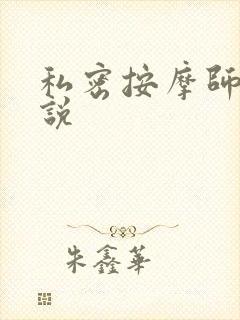 私密按摩師
說
朱鑫華